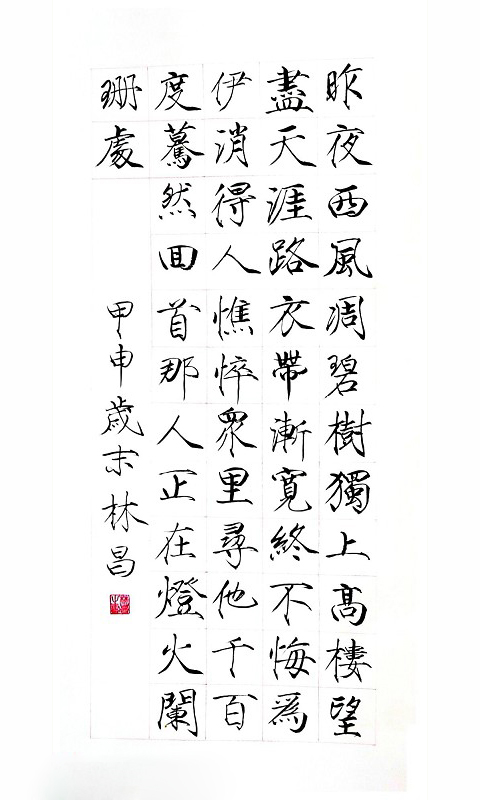 昨夜西風凋碧樹獨上高樓望
盡天涯路衣帶漸寬終不悔為
伊消得人憔悴眾里尋他千百
度驀然回首那人正在燈火闌
珊處
甲申歲末林昌